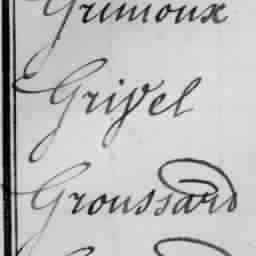 Grimoux
Grivel
Groussard